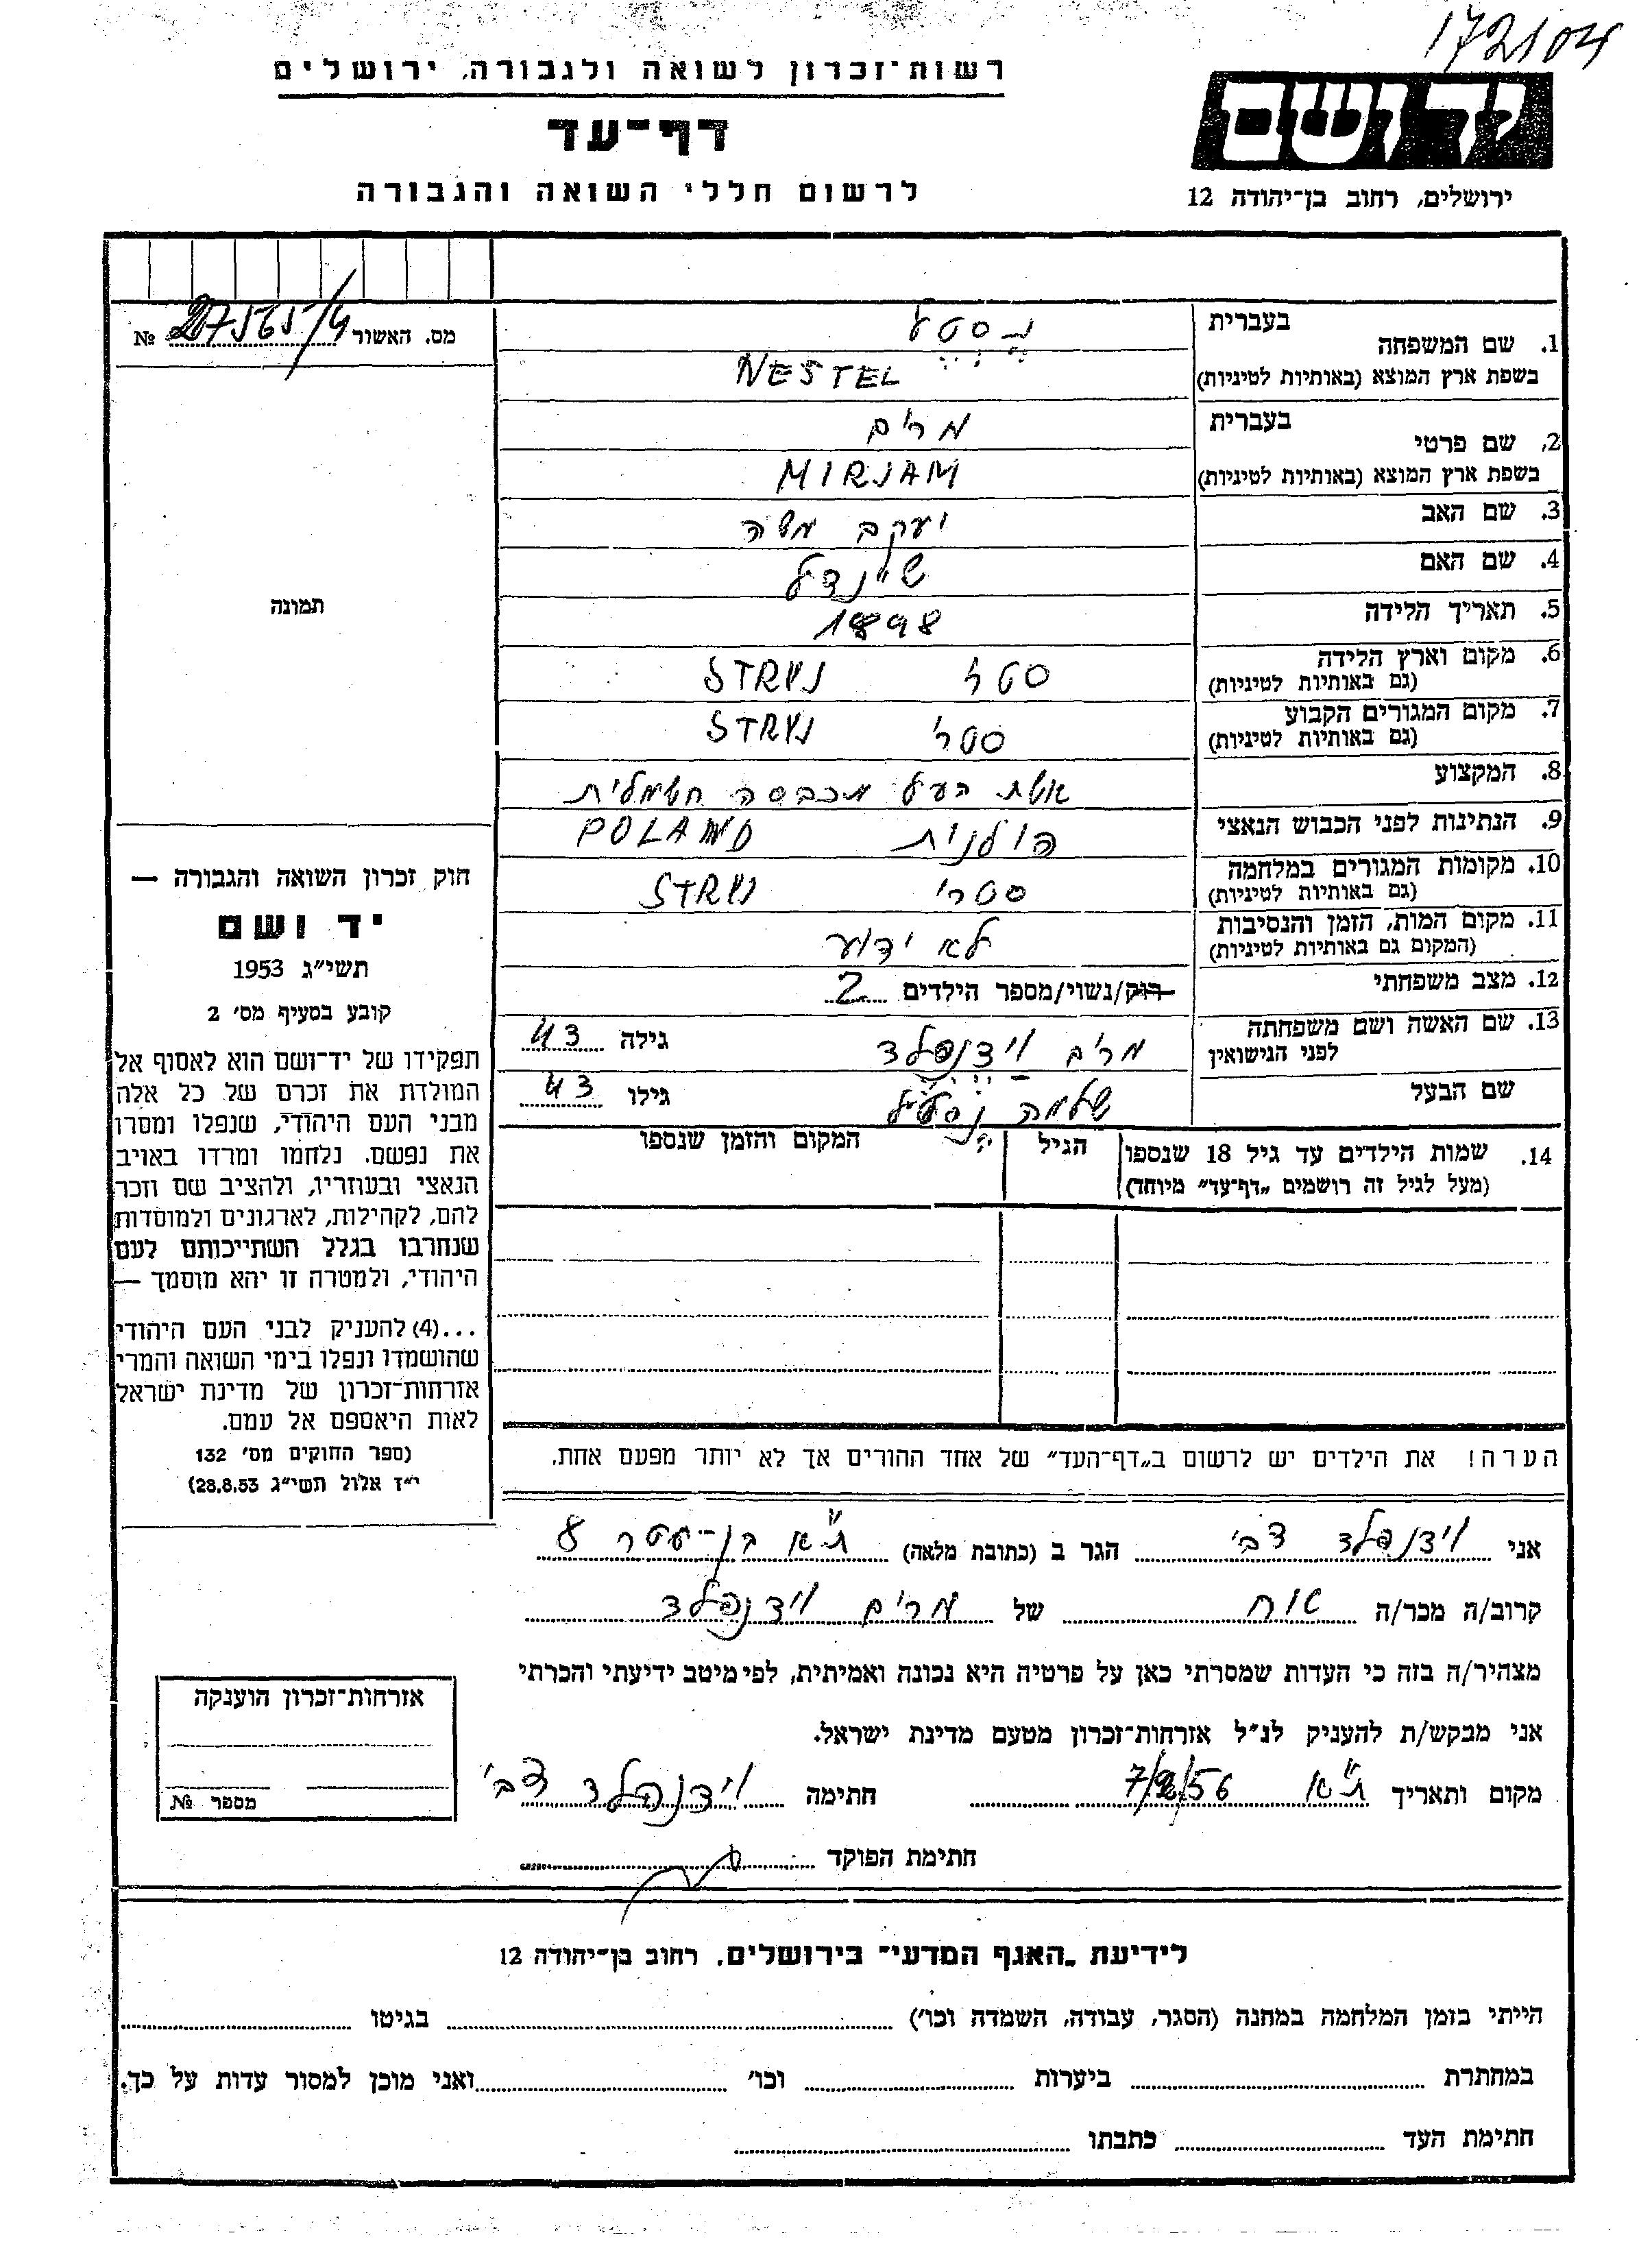 172104
רשות־זכרון לשואה ולגבורה, ירושלים
דף־עד
לרשום חללי השואה והגבורה
יד ושם
ירושלים, רחוב בן־יהודה 12
מס. האשור 27565/4 №
תמונה
חוק זכרון השואה והגבורה —
יד ושם
תשי״ג 1953
קובע בסעיף מס׳ 2
תפקידו של יד־ושם הוא לאסוף אל
המולדת את זכרם של כל אלה
מבני העם היהודי, שנפלו ומסרו
את נפשם, נלחמו ומרדו באויב
הנאצי ובעוזריו, ולהציב שם וזכר
להם, לקהילות, לארגונים ולמוסדות
שנחרבו בגלל השתייכותם לעם
היהודי, ולמטרה זו יהא מוסמך —
...(4) להעניק לבני העם היהודי
שהושמדו ונפלו בימי השואה והמרי
אזרחות־זכרון של מדינת ישראל
לאות היאספם אל עמם.
(ספר החוקים מס׳ 132
י״ז אלול תשי״ג 28.8.53)
בעברית
1. שם המשפחה נסטל
בשפת ארץ המוצא (באותיות לטיניות) NESTEL
בעברית
2. שם פרטי מרים
בשפת ארץ המוצא (באותיות לטיניות) MIRJAM
3. שם האב יעקב משה
4. שם האם שיינדל
5. תאריך הלידה 1898
6. מקום וארץ הלידה סטרי STRYJ
(גם באותיות לטיניות)
7. מקום המגורים הקבוע סטרי STRYJ
(גם באותיות לטיניות)
8. המקצוע אשת בעל מכבסה חשמלית
9. הנתינות לפני הכבוש הנאצי פולנית POLAND
10. מקומות המגורים במלחמה סטרי STRYJ
(גם באותיות לטיניות)
11. מקום המות, הזמן והנסיבות לא ידוע
(המקום גם באותיות לטיניות)
12. מצב משפחתי רוק/נשוי/מספר הילדים 2
13. שם האשה ושם משפחתה מרים וידנפלד גילה 43
לפני הנישואין
שם הבעל שלמה נסטל גילו 43
14. שמות הילדים עד גיל 18 שנספו הגיל המקום והזמן שנספו
(מעל לגיל זה רושמים „דף־עד״ מיוחד)
הערה! את הילדים יש לרשום ב„דף־העד״ של אחד ההורים אך לא יותר מפעם אחת.
אני וידנפלד צבי הגר ב (כתובת מלאה) ת״א בן-עטר 8
קרוב/ה מכר/ה אח של מרים וידנפלד
מצהיר/ה בזה כי העדות שמסרתי כאן על פרטיה היא נכונה ואמיתית, לפי מיטב ידיעתי והכרתי
אני מבקש/ת להעניק לנ״ל אזרחות־זכרון מטעם מדינת ישראל.
מקום ותאריך ת״א 7/2/56 חתימה וידנפלד צבי
חתימת הפוקד
אזרחות־זכרון הוענקה
מספר №
לידיעת „האגף המדעי״ בירושלים, רחוב בן־יהודה 12
הייתי בזמן המלחמה במחנה (הסגר, עבודה, השמדה וכו׳) בגיטו
במחתרת ביערות וכו׳ ואני מוכן למסור עדות על כך.
חתימת העד כתבתו